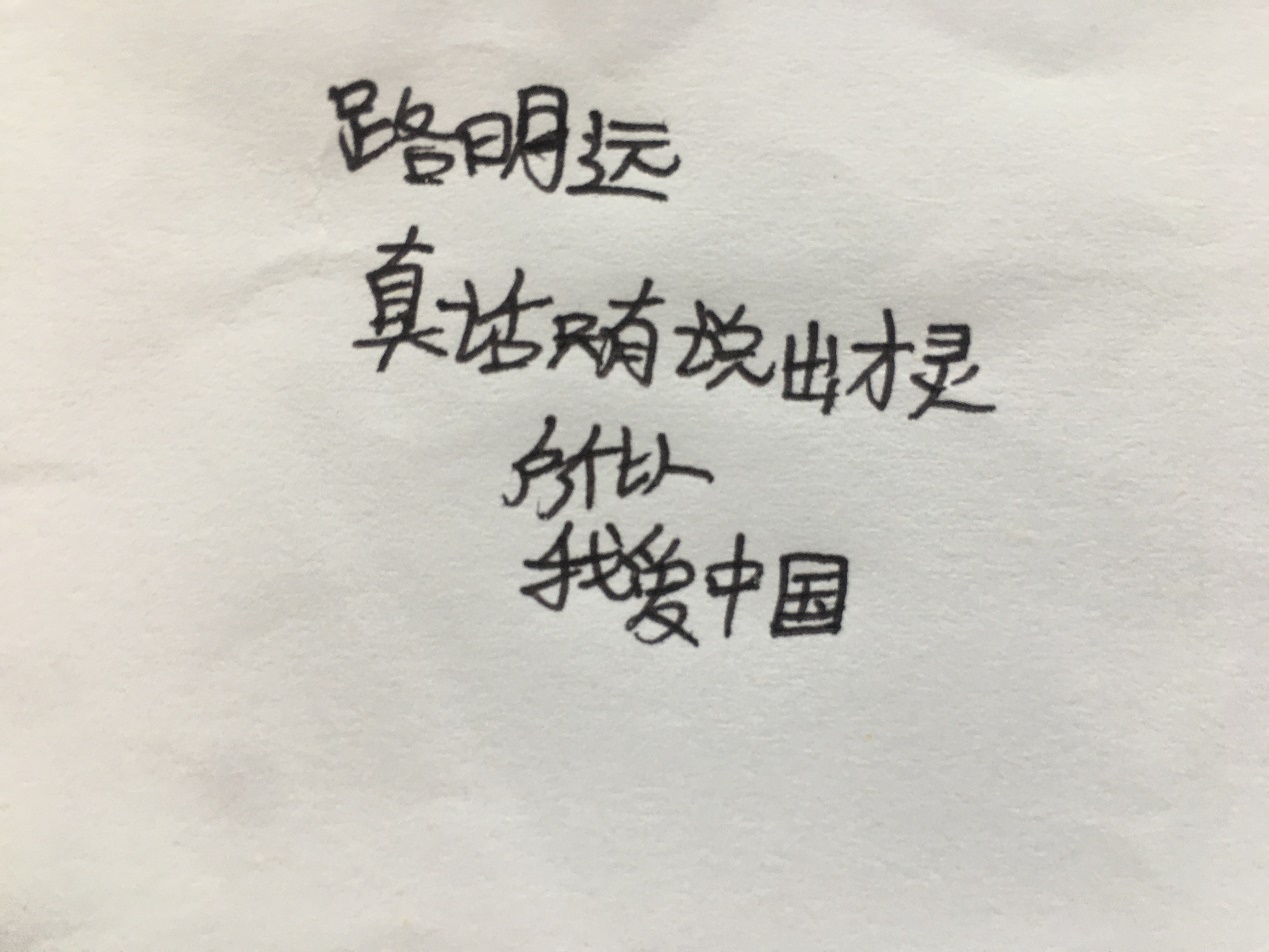 路明远
真话只有说出才灵
所以
我爱中国